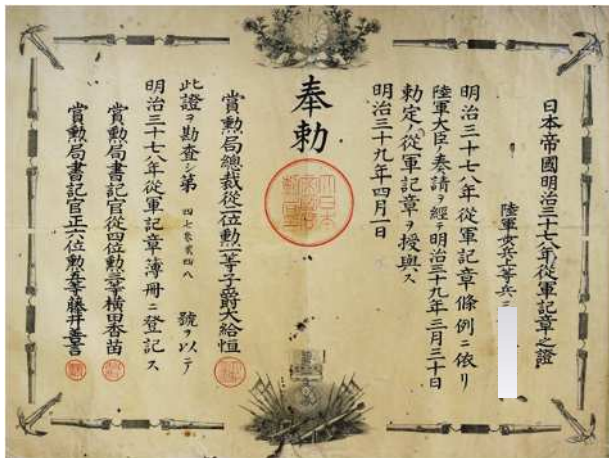 日本帝國明治三十七八年從軍記章之證
陸軍歩兵上等兵
明治三十七八年從軍記章條例ニ依リ
陸軍大臣ノ奏請ヲ經テ明治三十九年三月三十日
勅定ノ從軍記章ヲ授與ス
明治三十九年四月一日
奉勅
大日本
帝國賞
勲局印
賞勲局總裁從二位勲一等子爵大給恒
此證ヲ勘査シ第 號ヲ以テ
明治三十七八年從軍記章簿冊ニ登記ス
賞勲局書記官從四位勲三等横田香苗
賞勲局書記官正六位勲五等藤井善言